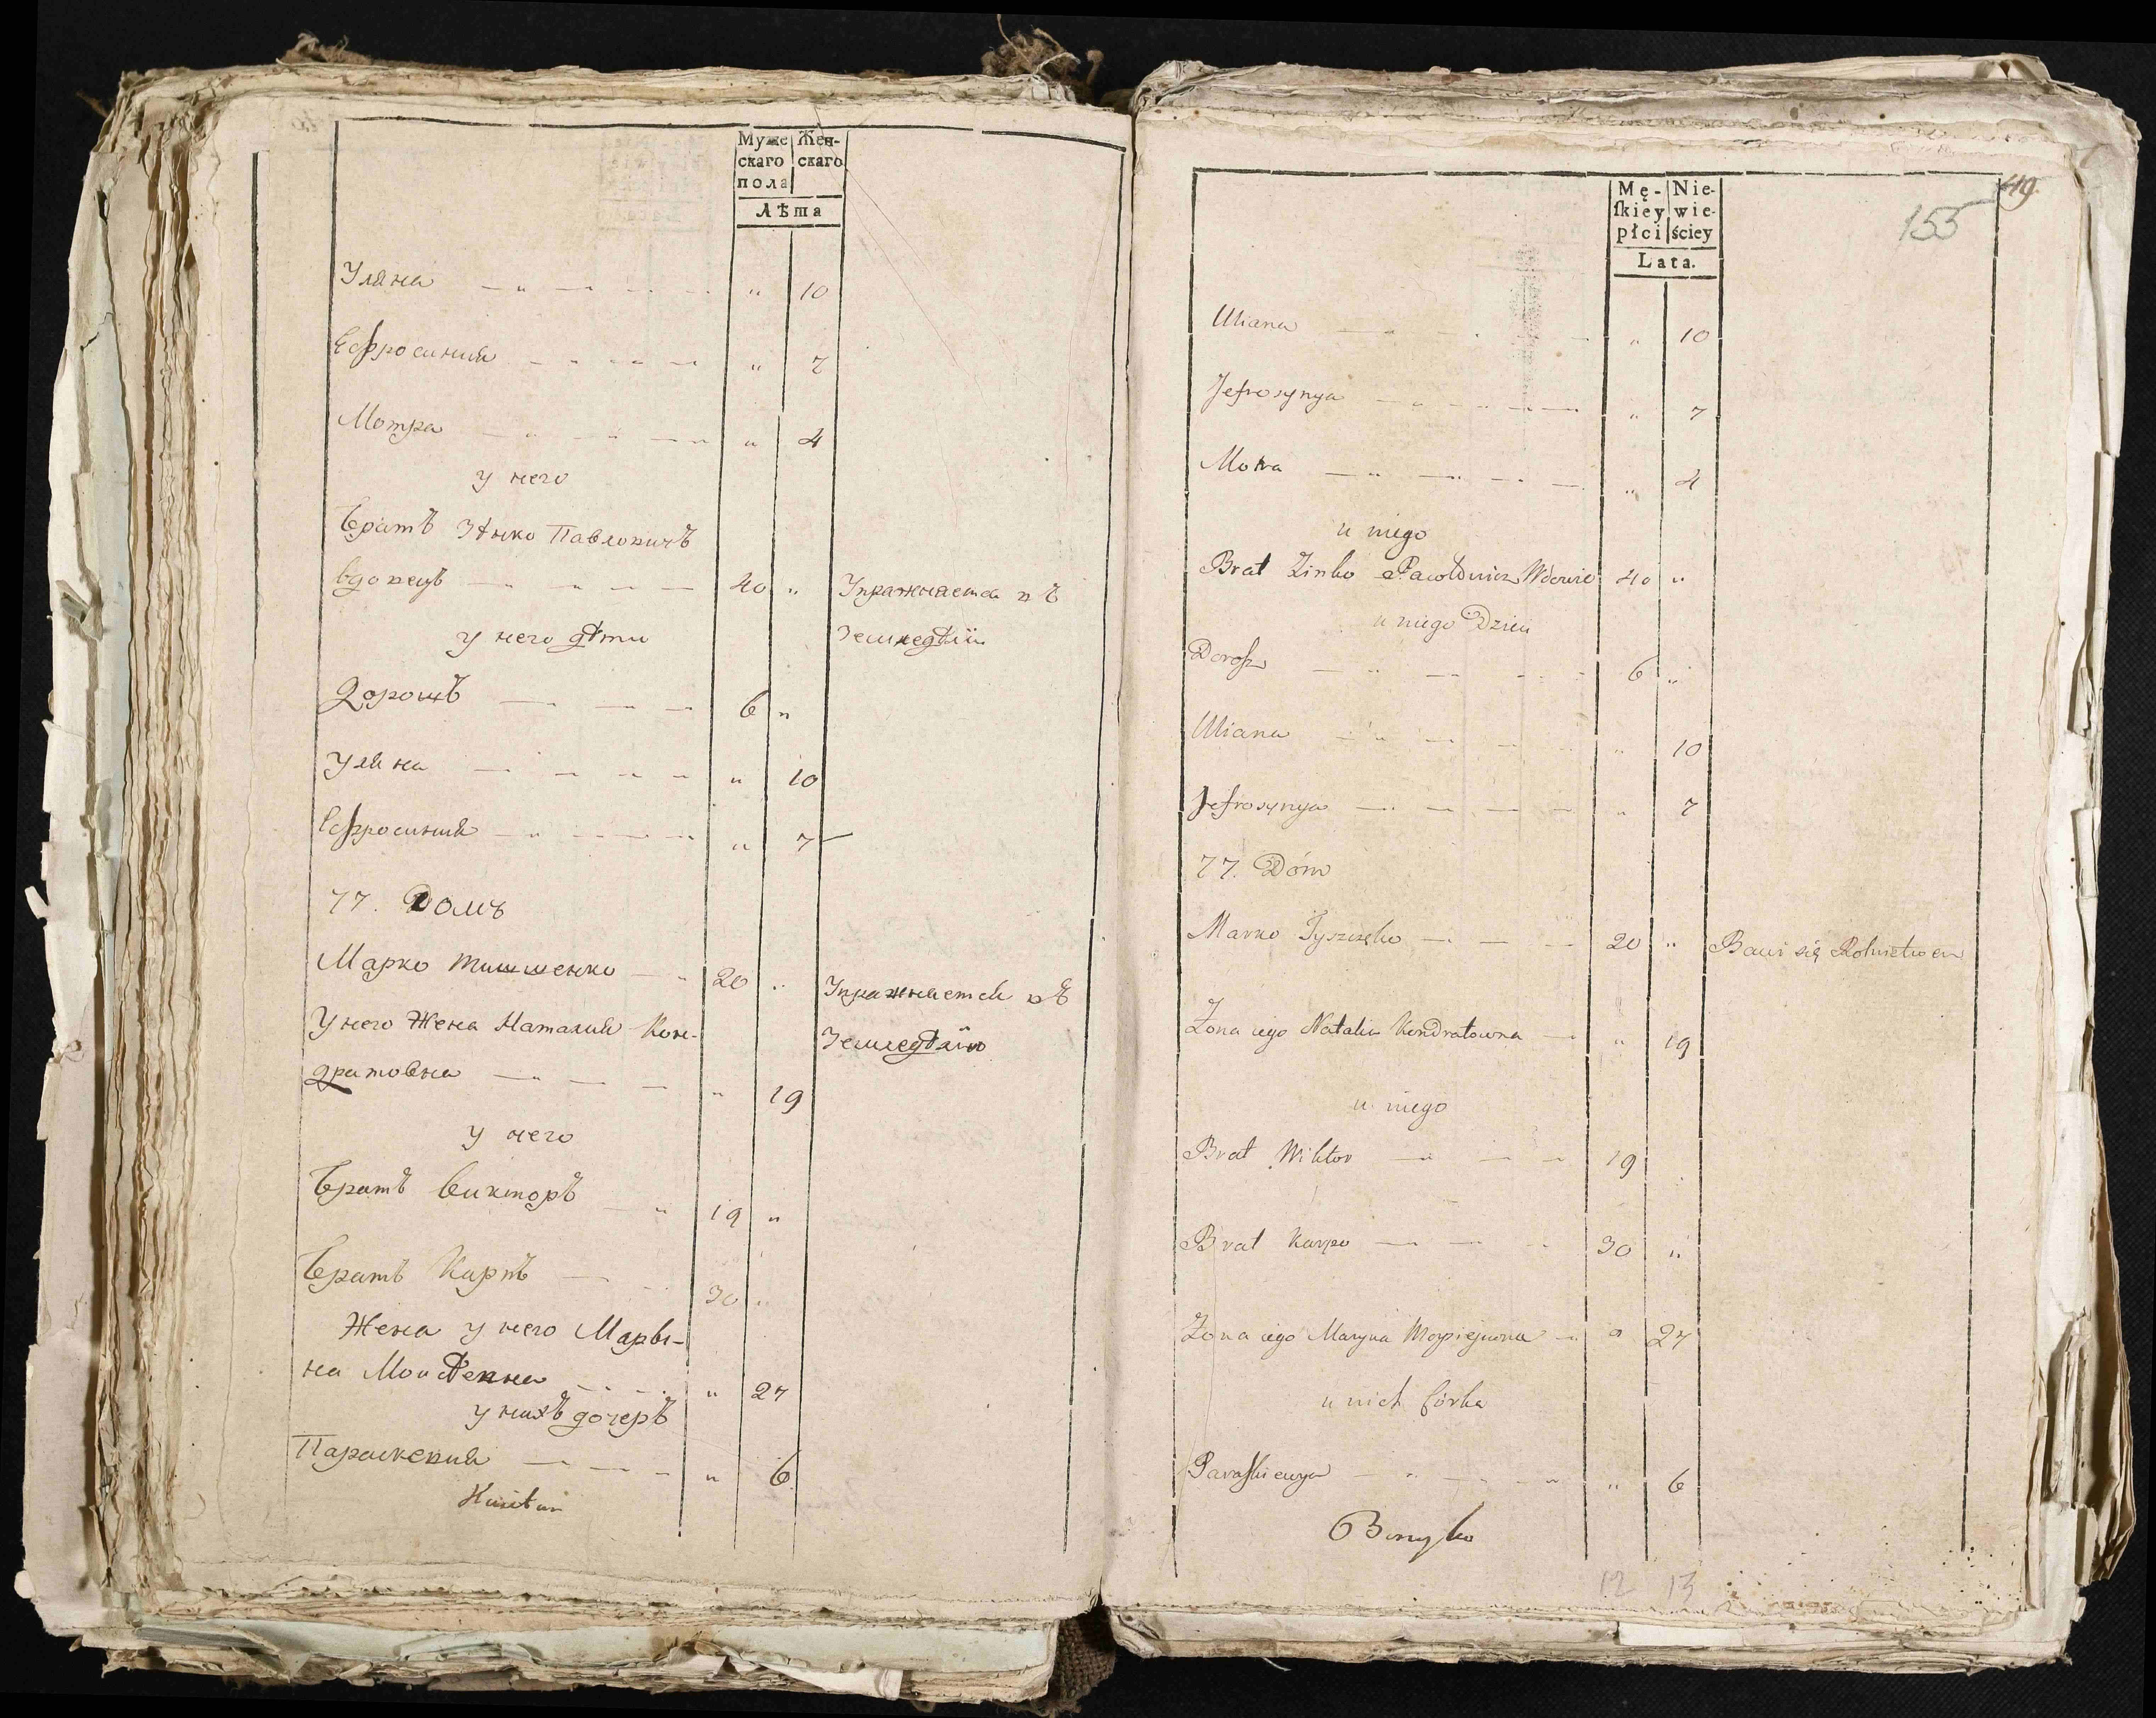 Муже Жен-
скаго скаго
пола
Лѣта
Уляна " 10
Ефросиния " 7
Мотра " 4
у него
братъ Зѣнко Павловичъ
вдовецъ 40 " Упражняется въ
у него дѣти Земледѣлїи
Дорошъ 6 "
Уляна " 10
Ефросиния " 7
77. Домъ
Марко Тишшенко 20 " Упражняется въ
У него Жена Наталия Кон- Земледѣлїи
дратовна " 19
у него
братъ Викторъ 19 "
братъ Карпъ 30 "
Жена у него Мары-
на Моисѣевна " 27
у нихъ дочеръ
Параскевия " 6
Mę- Nie-
skiey wie-
płci ściey
Lata.
49
155
Uliana " 10
Jefrosynya " 7
Motra " 4
u niego
Brat Zinko Pawłowicz Wdowiec 40 "
u niego Dzieci
Dorosz 6 "
Uliana " 10
Jefrosynya " 7
77. Dóm
Marko Tyszczęko 20 " Bawi się Rolnictwem
Żona iego Natalia Kondratowna " 19
u niego
Brat Wiktor 19
Brat Karpo 30 "
Żona iego Maryna Moysiejowna " 27
u nich Córka
Paraskiewya " 6
12 13